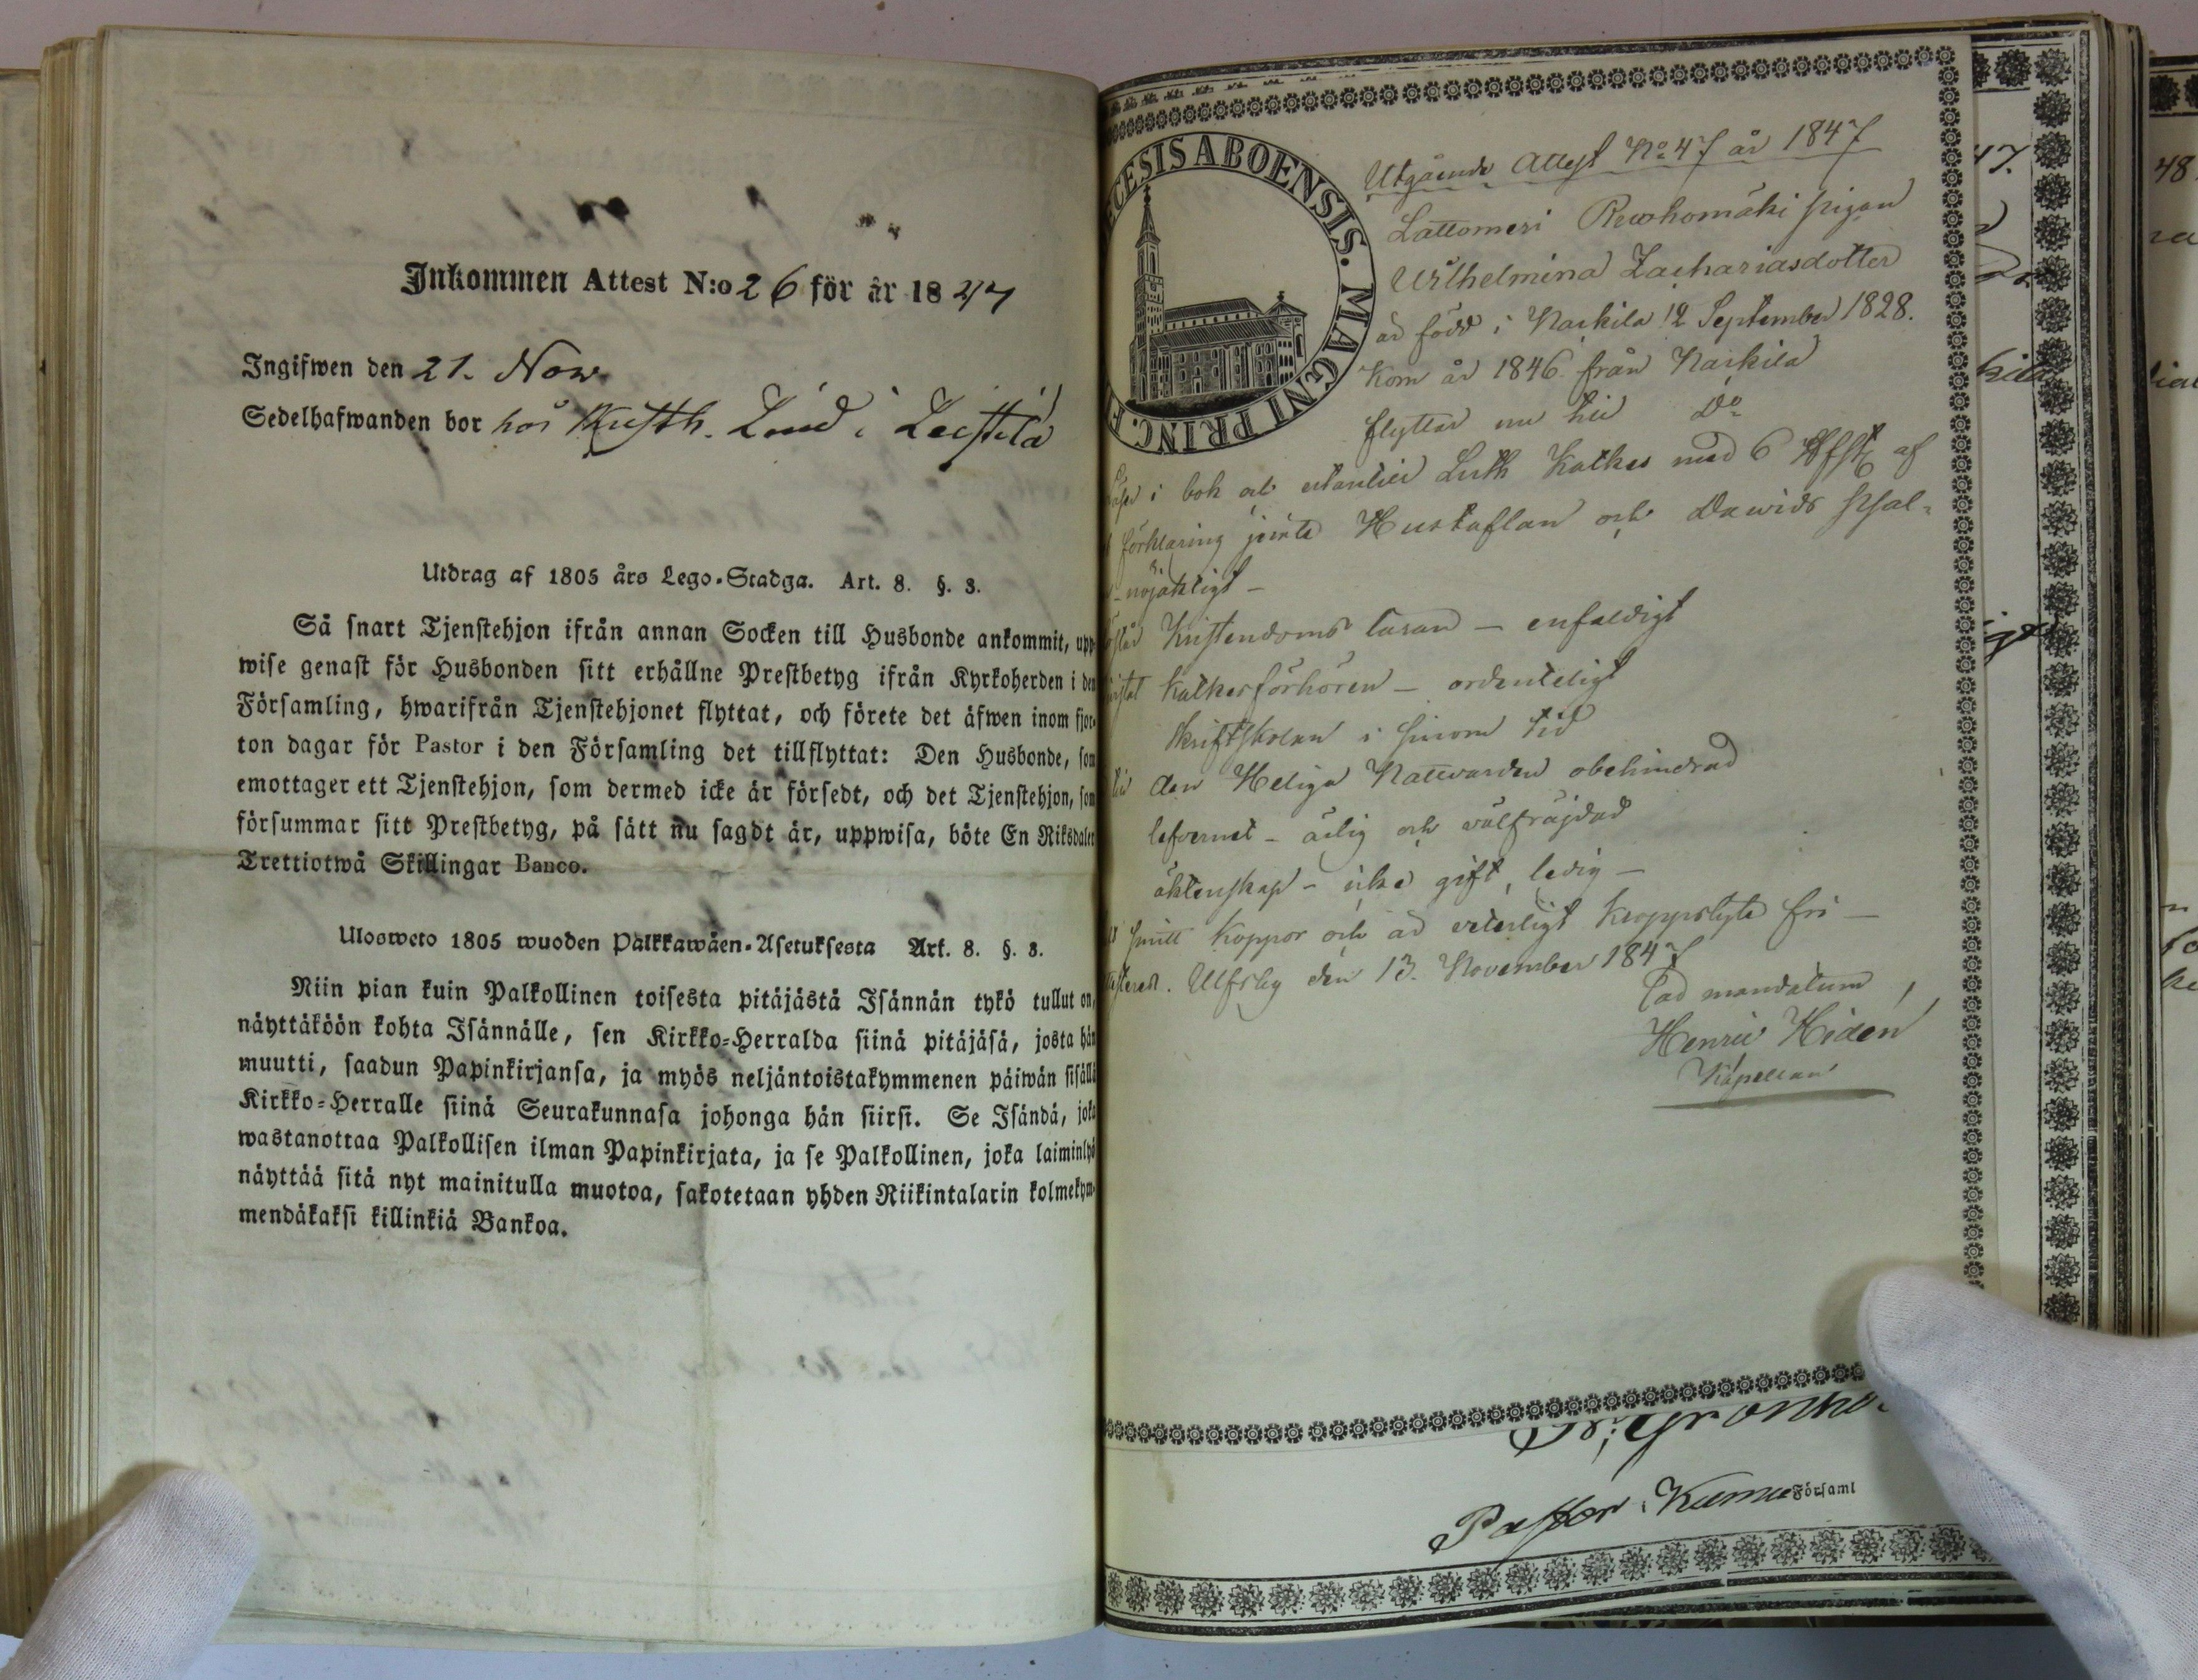 Inkommen Attest N:o 26 för år 1847
Ingifwen den 21. Now.
Sedelhafwanden bor hos Kusth. Lind i Leistilä
Utdrag af 1805 års Lego-Stadga. Art. 8. §. 3.
Så snart Tjenstehjon ifrån annan Socken till Husbonde ankommit, upp-
wise genast för Husbonden sitt erhållne Prestbetyg ifrån Kyrkoherden i den
Församling, hwarifrån Tjenstehjonet flyttat, och förete det äfwen inom fjor-
ton dagar för Pastor i den Församling det tillflyttat: Den Husbonde, som
emottager ett Tjenstehjon, som dermed icke är försedt, och det Tjenstehjon, som
försummar sitt Prestbetyg, på sätt nu sagdt är, uppwisa, böte En Riksdaler
Trettiotwå Skillingar Banco.
Ulosweto 1805 wuoden Palkkawäen-Asetuksesta Art. 8. §. 3.
Niin pian kuin Palkollinen toisesta pitäjästä Isännän tykö tullut on,
näyttäköön kohta Isännälle, sen Kirkko-Herralda siinä pitäjäsä, josta hän
muutti, saadun Papinkirjansa, ja myös neljäntoistakymmenen päiwän sisällä
Kirkko-Herralle siinä Seurakunnasa johonga hän siirsi. Se Isändä, joka
wastanottaa Palkollisen ilman Papinkirjata, ja se Palkollinen, joka laiminlyö
näyttää sitä nyt mainitulla muotoa, sakotetaan yhden Riikintalarin kolmekym-
mendäkaksi killinkiä Bankoa.
ECESIS ABOENSIS. MAGNI PRINC. F
Utgående Attest No 47 år 1847
Lattomeri Rewhomäki pigan
Wilhelmina Zachariasdotter
är född i Nackila 12 September 1828.
Kom år 1846 från Nackila
flyttar nu till Do
i bok och utantill Luth Katkes med 6 Hfst. af
förklaring jemte Hustaflan och Davids Psal-
nöjaktligt -
Kristendoms läran - enfaldigt
Katkesförhören - ordenteligt
Skriftskolan i sinom tid
den Heliga Nattvarden obehindrad
lefvernet - ärlig och välfräjdad
äktenskap - icke gift, ledig -
haft Koppor och är veterligt kroppslyte fri -
Ulfsby den 13. November 1847
ad mandatum
Henric Hidén
Kapellan
Pastor i Kumo Församl